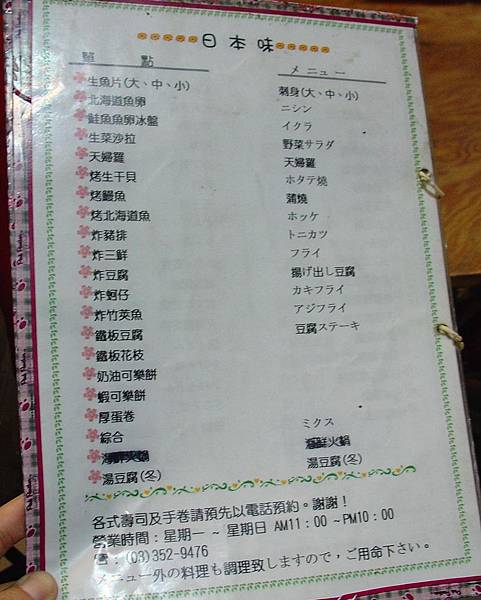 日本味
單點 メニュー
生魚片(大、中、小) 刺身(大、中、小)
北海道魚卵 ニシン
鮭魚魚卵冰盤 イクラ
生菜沙拉 野菜サラダ
天婦羅 天婦羅
烤生干貝 ホタテ燒
烤鰻魚 蒲燒
烤北海道魚 ホッケ
炸豬排 トニカツ
炸三鮮 フライ
炸豆腐 揚げ出し豆腐
炸蚵仔 カキフライ
炸竹莢魚 アジフライ
鐵板豆腐 豆腐ステーキ
鐵板花枝
奶油可樂餅
蝦可樂餅
厚蛋卷
綜合 ミクス
海鮮火鍋 海鮮火鍋
湯豆腐(冬) 湯豆腐(冬)
各式壽司及手卷請預先以電話預約。謝謝！
營業時間：星期一 ~ 星期日 AM11：00 ~PM10：00
☎：(03)352-9476
メニュー外の料理も調理致しますので，ご用命下さい。